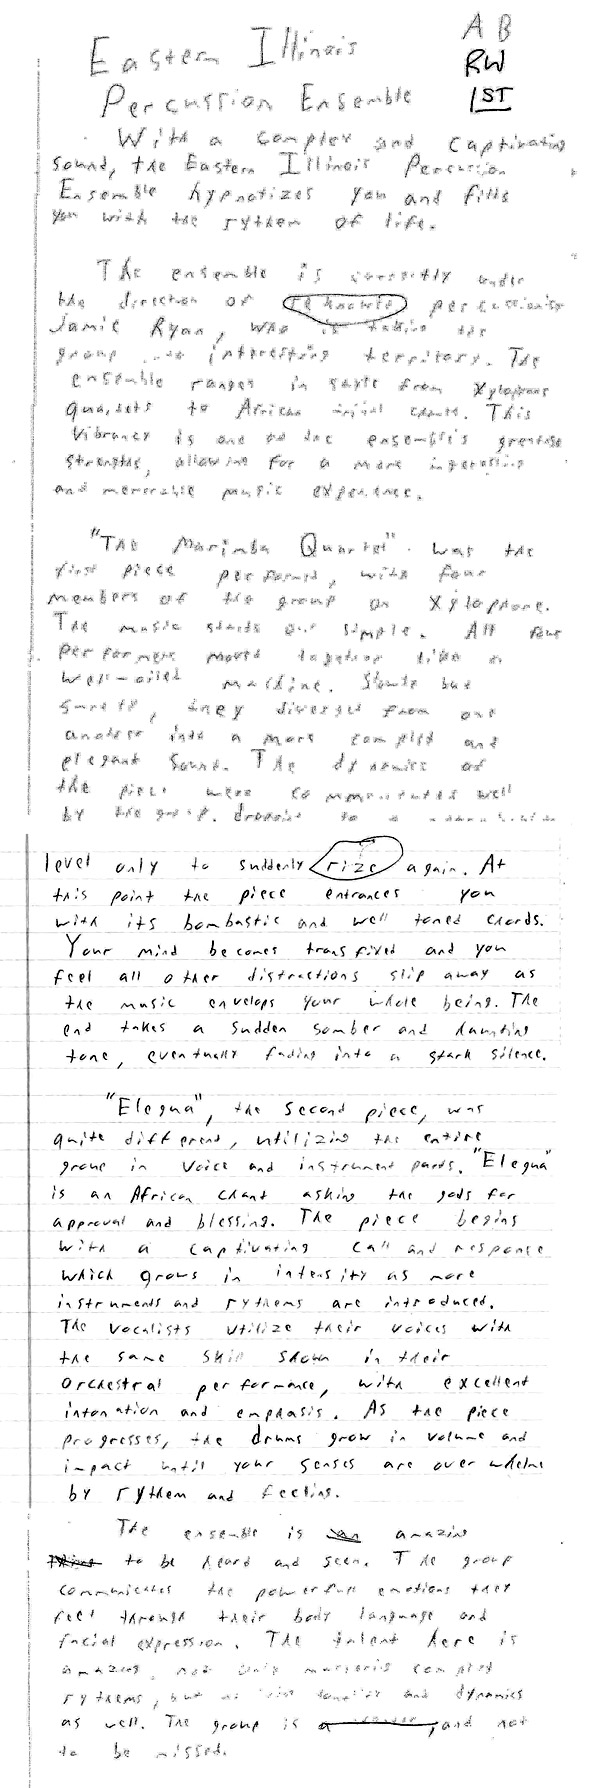 Eastern Illinois
A B
RW
1ST
Percussion Ensemble
With a complex and captivating
sound, the Eastern Illinois Percussion
Ensemble hypnotizes you and fills
you with the rythem of life.
The ensemble is under
the direction of percussionist
Jamie Ryan, who is taking the
group into interesting territory. The
ensemble ranges in style from xylophone
quartets to African chants. This
vibrancy is one of the ensemble's greatest
strengths, allowing for a more
and memorable music experience.
"The Marimba Quartet" was the
first piece performed, with four
members of the group on xylophone.
The music starts out simple. All four
performers moved together like a
well-oiled machine. Slowly but
surely, they diverged from one
another into a more and
elegant sound. The dynamics of
the piece were well
by the group, to a
level only to suddenly rize again. At
this point the piece entrances you
with its bombastic and well toned chords.
Your mind becomes transfixed and you
feel all other distractions slip away as
the music envelops your whole being. The
end takes a sudden somber and haunting
tone, eventually fading into a stark silence.
"Elegua", the second piece, was
quite different, utilizing the entire
group in voice and instrument parts. "Elegua"
is an African chant asking the gods for
approval and blessing. The piece begins
with a captivating call and response
which grows in intensity as more
instruments and rythems are introduced.
The vocalists utilize their voices with
the same skill shown in their
orchestral performance, with excellent
intonation and emphasis. As the piece
progresses, the drums grow in volume and
impact until your senses are overwhelme
by rythem and feeling.
The ensemble is amazing
to be heard and seen. The group
communicates the powerfull emotions they
feel through their body language and
facial expression. The talent here is
amazing, not only
rythems, but and dynamics
as well. The group is , and not
to be missed.